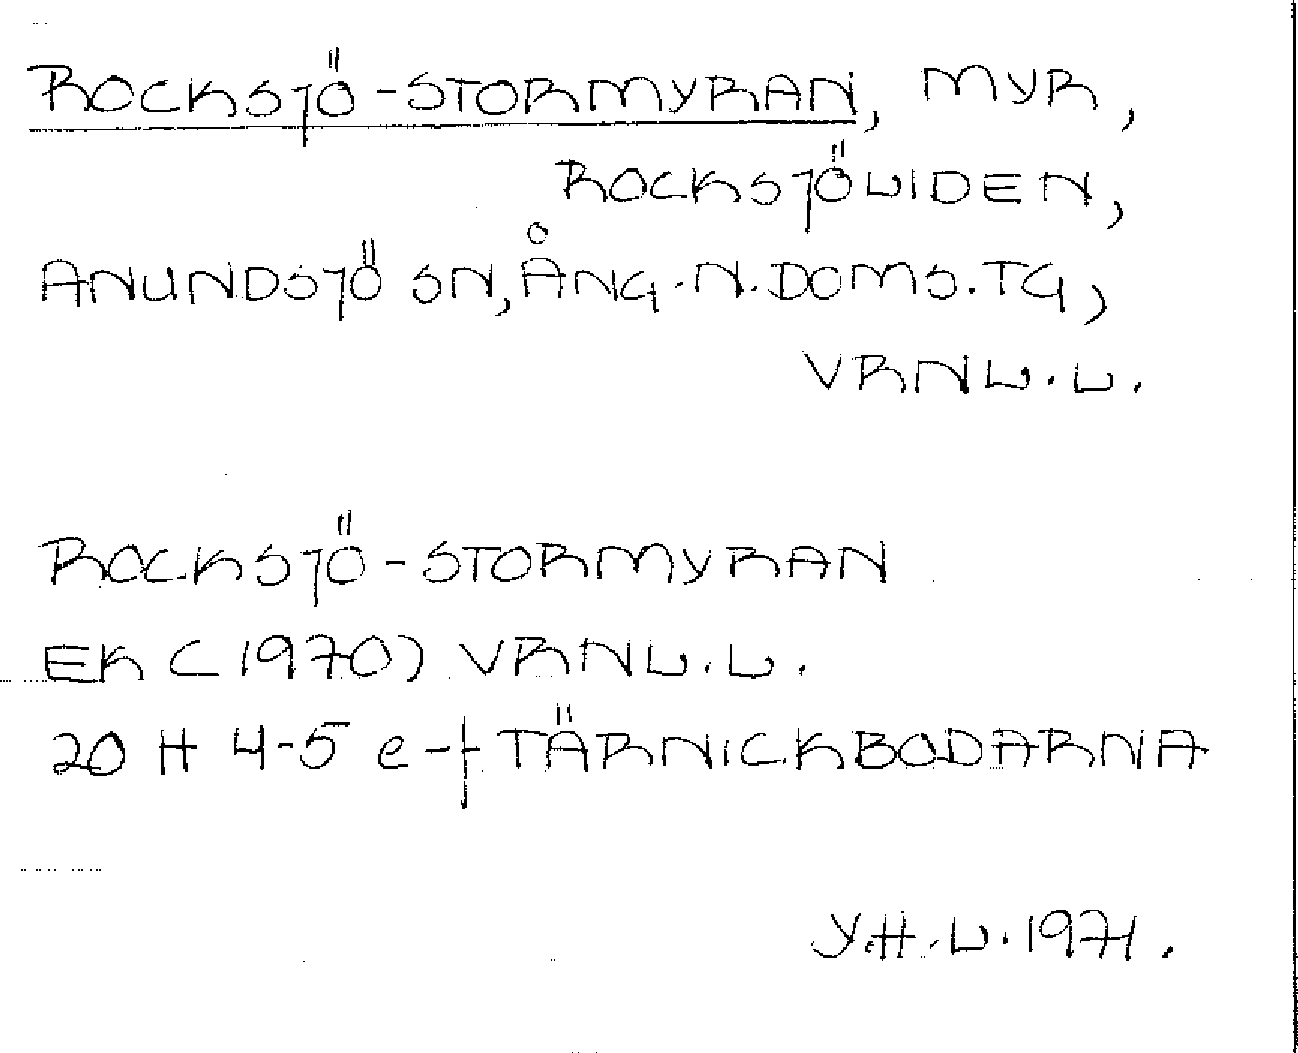 ROCKSJÖ-STORMYRAN, MYR,
ROCKSJÖLIDEN,
ANUNDSJÖ SN, ÅNG. N. DOMS. TG,
VRNL. L.
ROCKSJÖ-STORMYRAN
EK (1970) VRNL. L.
20 H 4-5 e-f TÄRNICKBODARNA
Y.H. L. 1971.